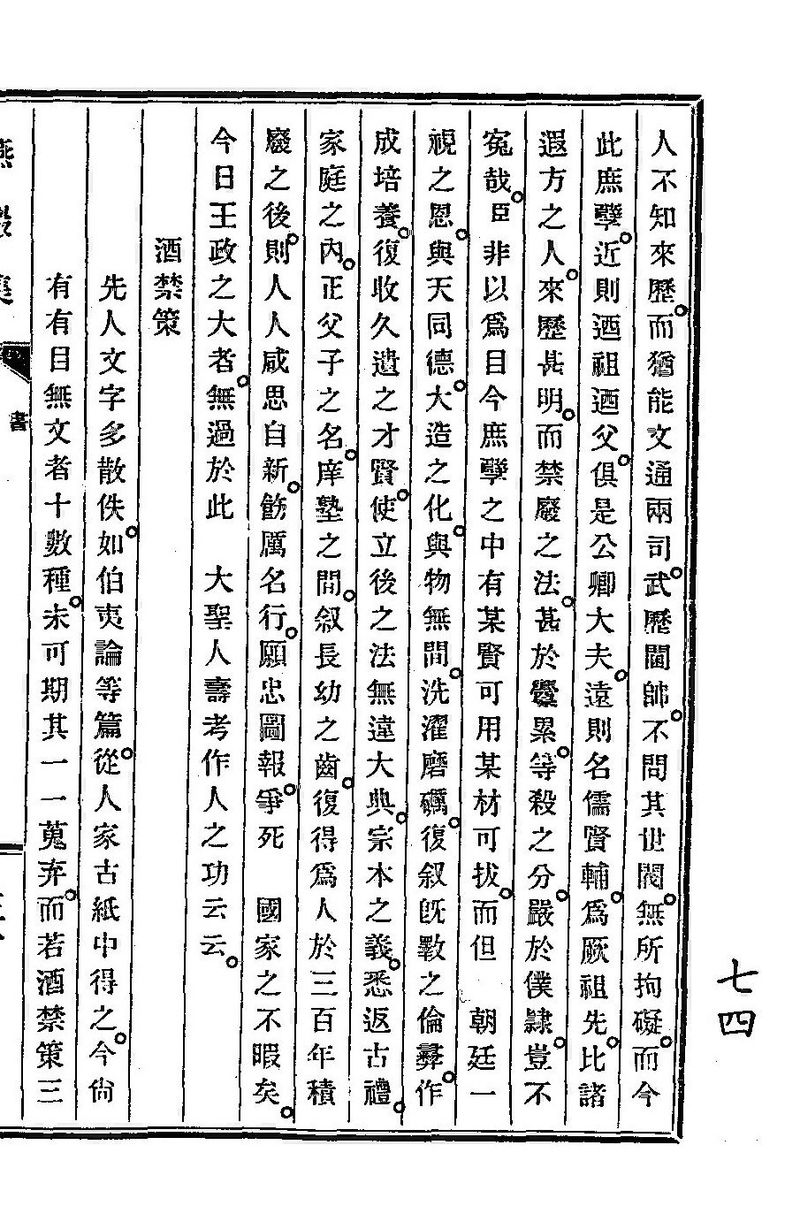 人不知來歷。而猶能文通兩司。武歷閫帥。不問其世閥。無所拘礙。而今
此庶孼。近則迺祖迺父。俱是公卿大夫。遠則名儒賢輔。爲厥祖先。比諸
遐方之人。來歷甚明。而禁廢之法。甚於釁累。等殺之分。嚴於僕隷。豈不
寃哉。臣非以爲目今庶孼之中有某賢可用某材可拔。而但 朝廷一
視之恩。與天同德。大造之化。與物無間。洗濯磨礪。復叙旣斁之倫彛。作
成培養。復收久遺之才賢。使立後之法無違大典。宗本之義。悉返古禮。
家庭之內。正父子之名。庠塾之間。叙長幼之齒。復得爲人於三百年積
廢之後。則人人咸思自新。飭厲名行。願忠圖報。爭死 國家之不暇矣。
今日王政之大者。無過於此 大聖人壽考作人之功云云。
酒禁策
先人文字多散佚。如伯夷論等篇。從人家古紙中得之。今尙
有有目無文者十數種。未可期其一一蒐弆。而若酒禁策三
書
七四